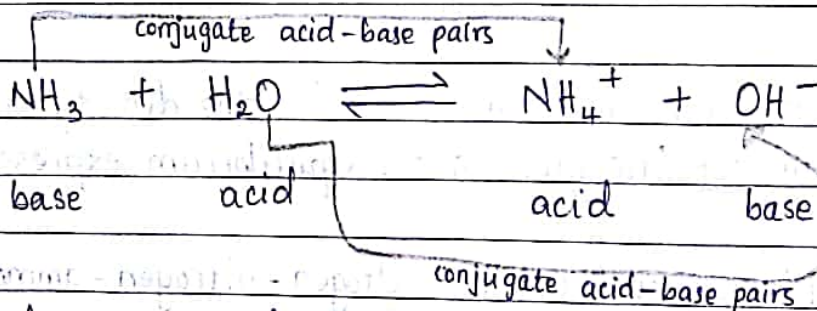 conjugate acid-base pairs
NH₃ + H₂O ⇌ NH₄⁺ + OH⁻
base acid acid base
conjugate acid-base pairs